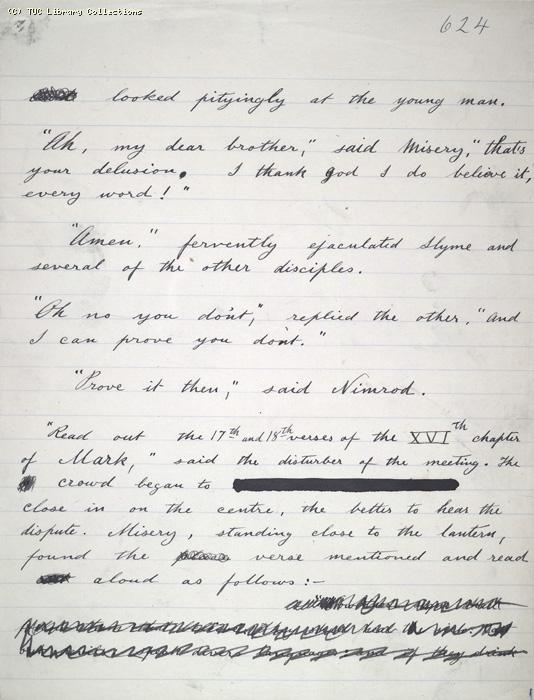 (C) TUC Library Collections
624
looked pityingly at the young man.
"Ah, my dear brother," said Misery, "that's
your delusion. I thank god I do believe it,
every word!"
"Amen," fervently ejaculated Slyme and
several of the other disciples.
"Oh no you don't," replied the other. "And
I can prove you don't."
"Prove it then," said Nimrod.
"Read out the 17th and 18th verses of the XVIth chapter
of Mark," said the disturber of the meeting. The
crowd began to
close in on the centre, the better to hear the
dispute. Misery, standing close to the lantern,
found the verse mentioned and read
aloud as follows:-